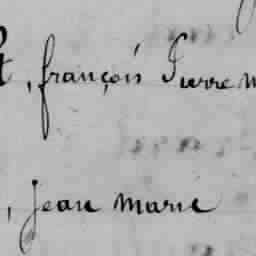 t, françois Pierre m
, jean marie